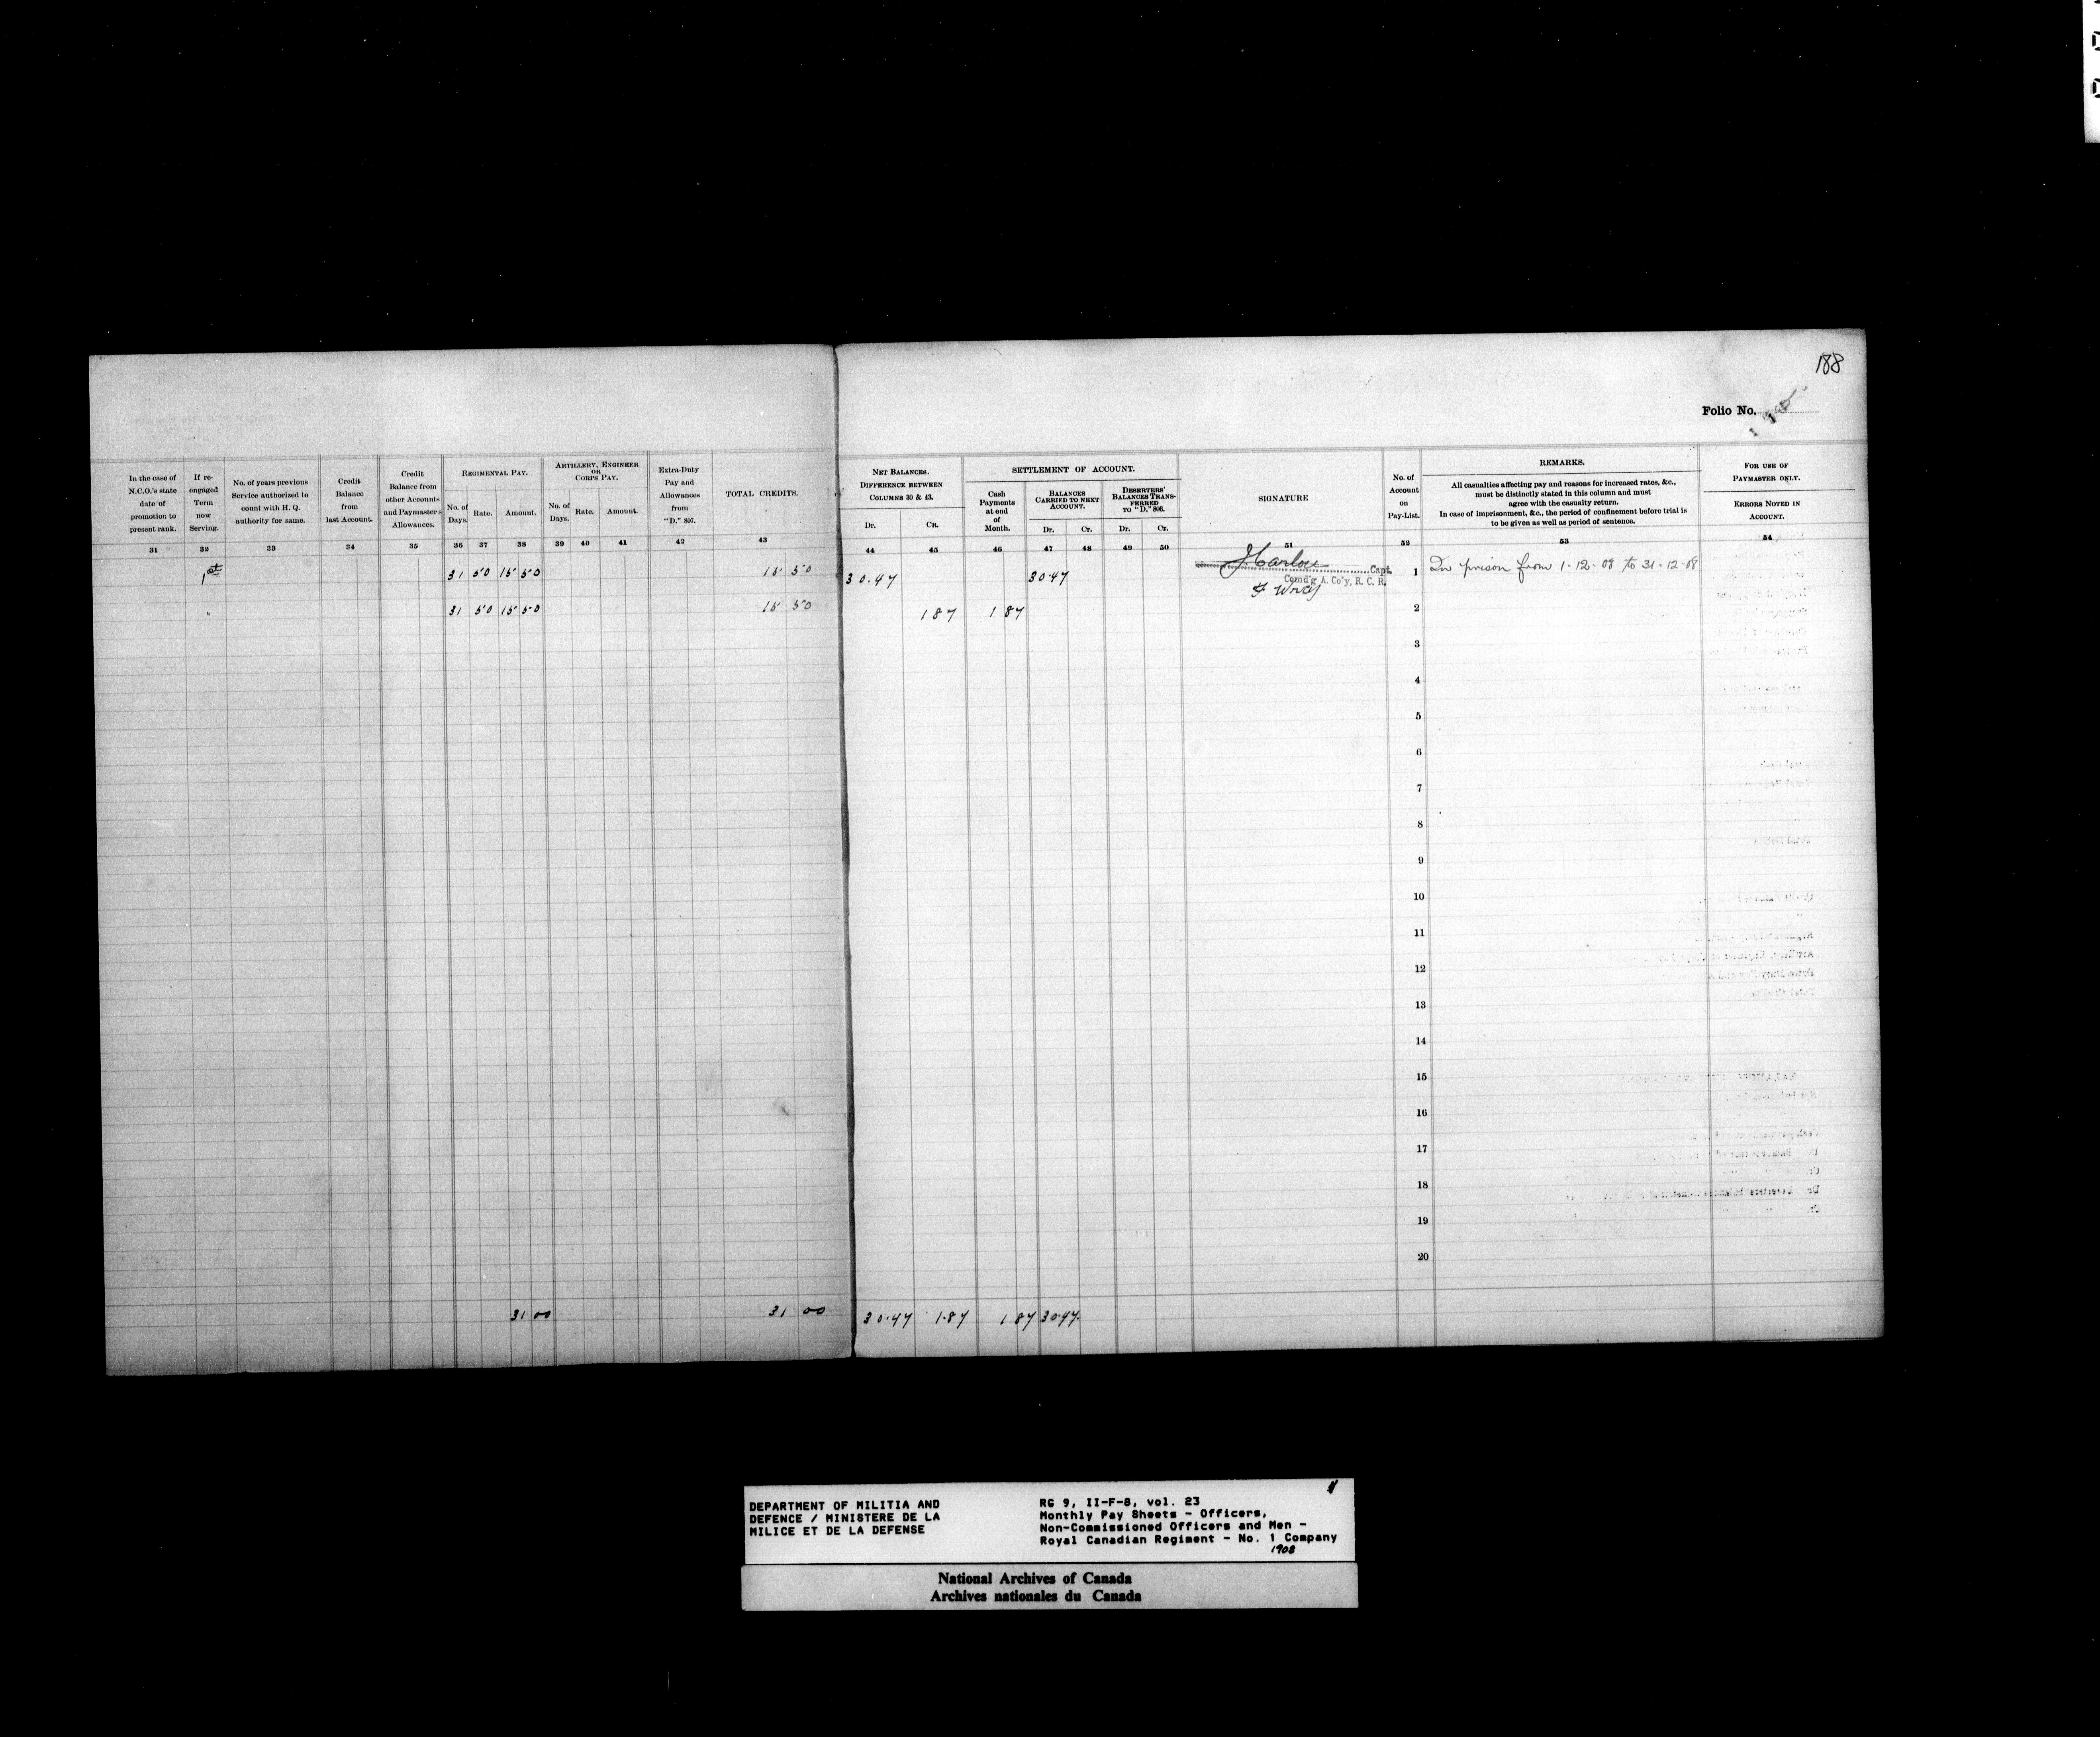 188
Folio No.
In the case of
N.C.O.'s state
date of
promotion to
present rank.
31
If re-
engaged
Term
now
Serving.
32
No. of years previous
Service authorized to
count with H. Q.
authority for same.
33
Credit
Balance
from
last Account.
34
Credit
Balance from
other Accounts
and Paymaster's
Allowances.
35
REGIMENTAL PAY.
No. of
Days.
Rate.
Amount.
36 37 38
ARTILLERY, ENGINEER
OR
CORPS PAY.
No. of
Days.
Rate.
Amount.
39 40 41
Extra-Duty
Pay and
Allowances
from
"D." 807.
42
TOTAL CREDITS.
43
NET BALANCES.
DIFFERENCE BETWEEN
COLUMNS 30 & 43.
Dr. Cr.
44 45
SETTLEMENT OF ACCOUNT.
Cash
Payments
at end
of
Month.
46
BALANCES
CARRIED TO NEXT
ACCOUNT.
Dr. Cr.
47 48
DESERTERS'
BALANCES TRANS-
FERRED
TO "D." 806.
Dr. Cr.
49 50
SIGNATURE
51
No. of
Account
on
Pay-List.
52
REMARKS.
All casualties affecting pay and reasons for increased rates, &c.,
must be distinctly stated in this column and must
agree with the casualty return.
In case of imprisonment, &c., the period of confinement before trial is
to be given as well as period of sentence.
53
FOR USE OF
PAYMASTER ONLY.
ERRORS NOTED IN
ACCOUNT.
54
1st 31 50 15 50 15 50 30.47 30.47 Capt. 1 In prison from 1-12-08 to 31-12-08
Comd'g A. Co'y, R. C. R.
" 31 50 15 50 15 50 1 87 1 87 2
3
4
5
6
7
8
9
10
11
12
13
14
15
16
17
18
19
20
31 00 31 00 30.47 1.87 1 87 30.47
DEPARTMENT OF MILITIA AND
DEFENCE / MINISTERE DE LA
MILICE ET DE LA DEFENSE
RG 9, II-F-8, vol. 23
Monthly Pay Sheets - Officers,
Non-Commissioned Officers and Men -
Royal Canadian Regiment - No. 1 Company
1908
National Archives of Canada
Archives nationales du Canada